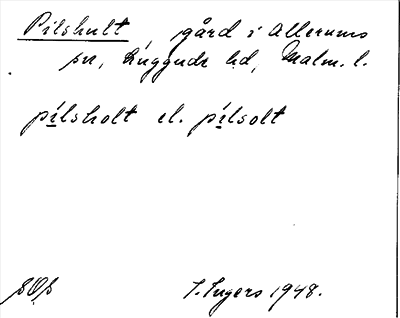 Pilshult, gård i Allerums
sn, Luggude hd, Malm. l.
pílsholt el. pílsolt
sOs
I. Ingers 1948.